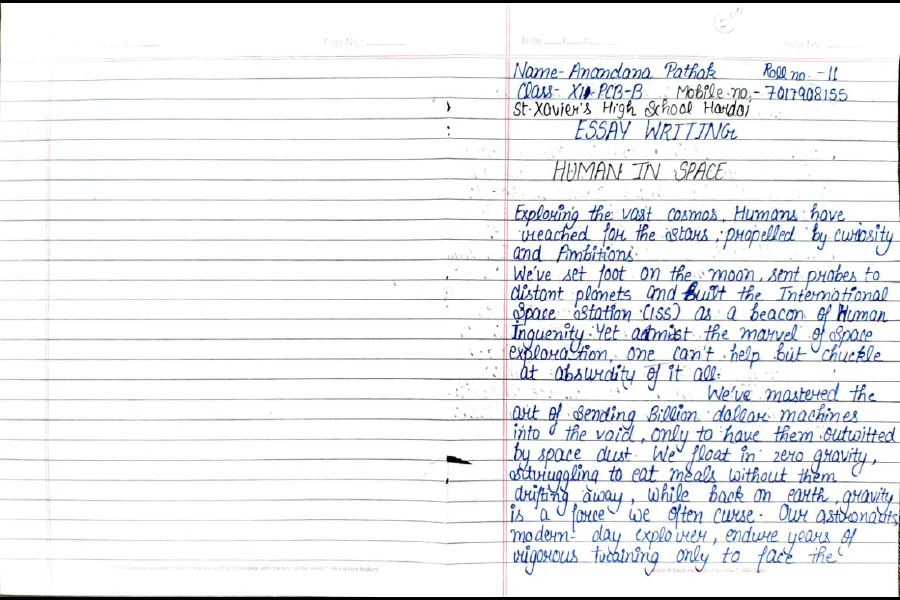 Page No.:
Date
Page No.:
Name- Anandana Pathak Roll no. -11
Class- XI-PCB-B Mobile no.- 7017908155
St. Xavier's High School Hardoi
ESSAY WRITING
HUMAN IN SPACE
Exploring the vast cosmos, Humans have
reached for the stars, propelled by curiosity
and Ambitions.
We've set foot on the moon, sent probes to
distant planets and Built the International
Space Station (ISS) as a beacon of Human
Inguenity. Yet admist the marvel of Space
exploration, one can't help but chuckle
at absurdity of it all.
We've mastered the
art of Sending Billion dollar machines
into the void, only to have them outwitted
by space dust. We float in zero gravity,
struggling to eat meals without them
drifting away, while back on earth, gravity
is a force we often curse. Our astronauts,
modern- day explorer, endure years of
rigorous training only to face the